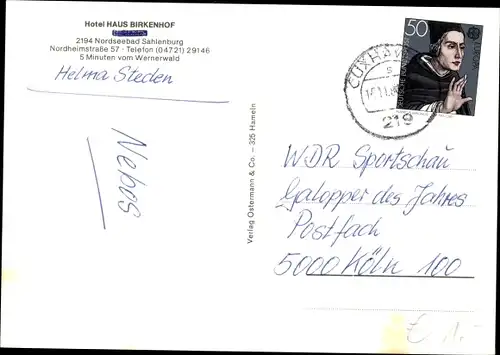 Hotel HAUS BIRKENHOF
2194 Nordseebad Sahlenburg
Nordheimstraße 57 · Telefon (04721) 29146
5 Minuten vom Wernerwald
Helma Steden
Nebos
Verlag Ostermann & Co. – 325 Hameln
50
CUXHAVEN
219
WDR Sportschau
Galopper des Jahres
Postfach
5000 Köln 100